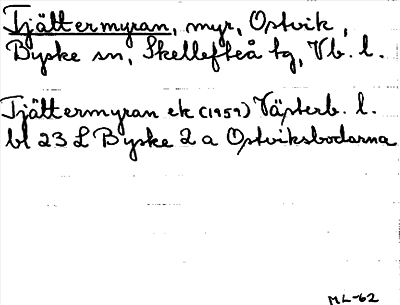 Tjättermyran, myr, Ostvik,
Byske sn, Skellefteå tg, Vb. l.
Tjättermyran ek (1959) Västerb. l.
bl 23 L Byske 2 a Ostviksbodarna
ML-62